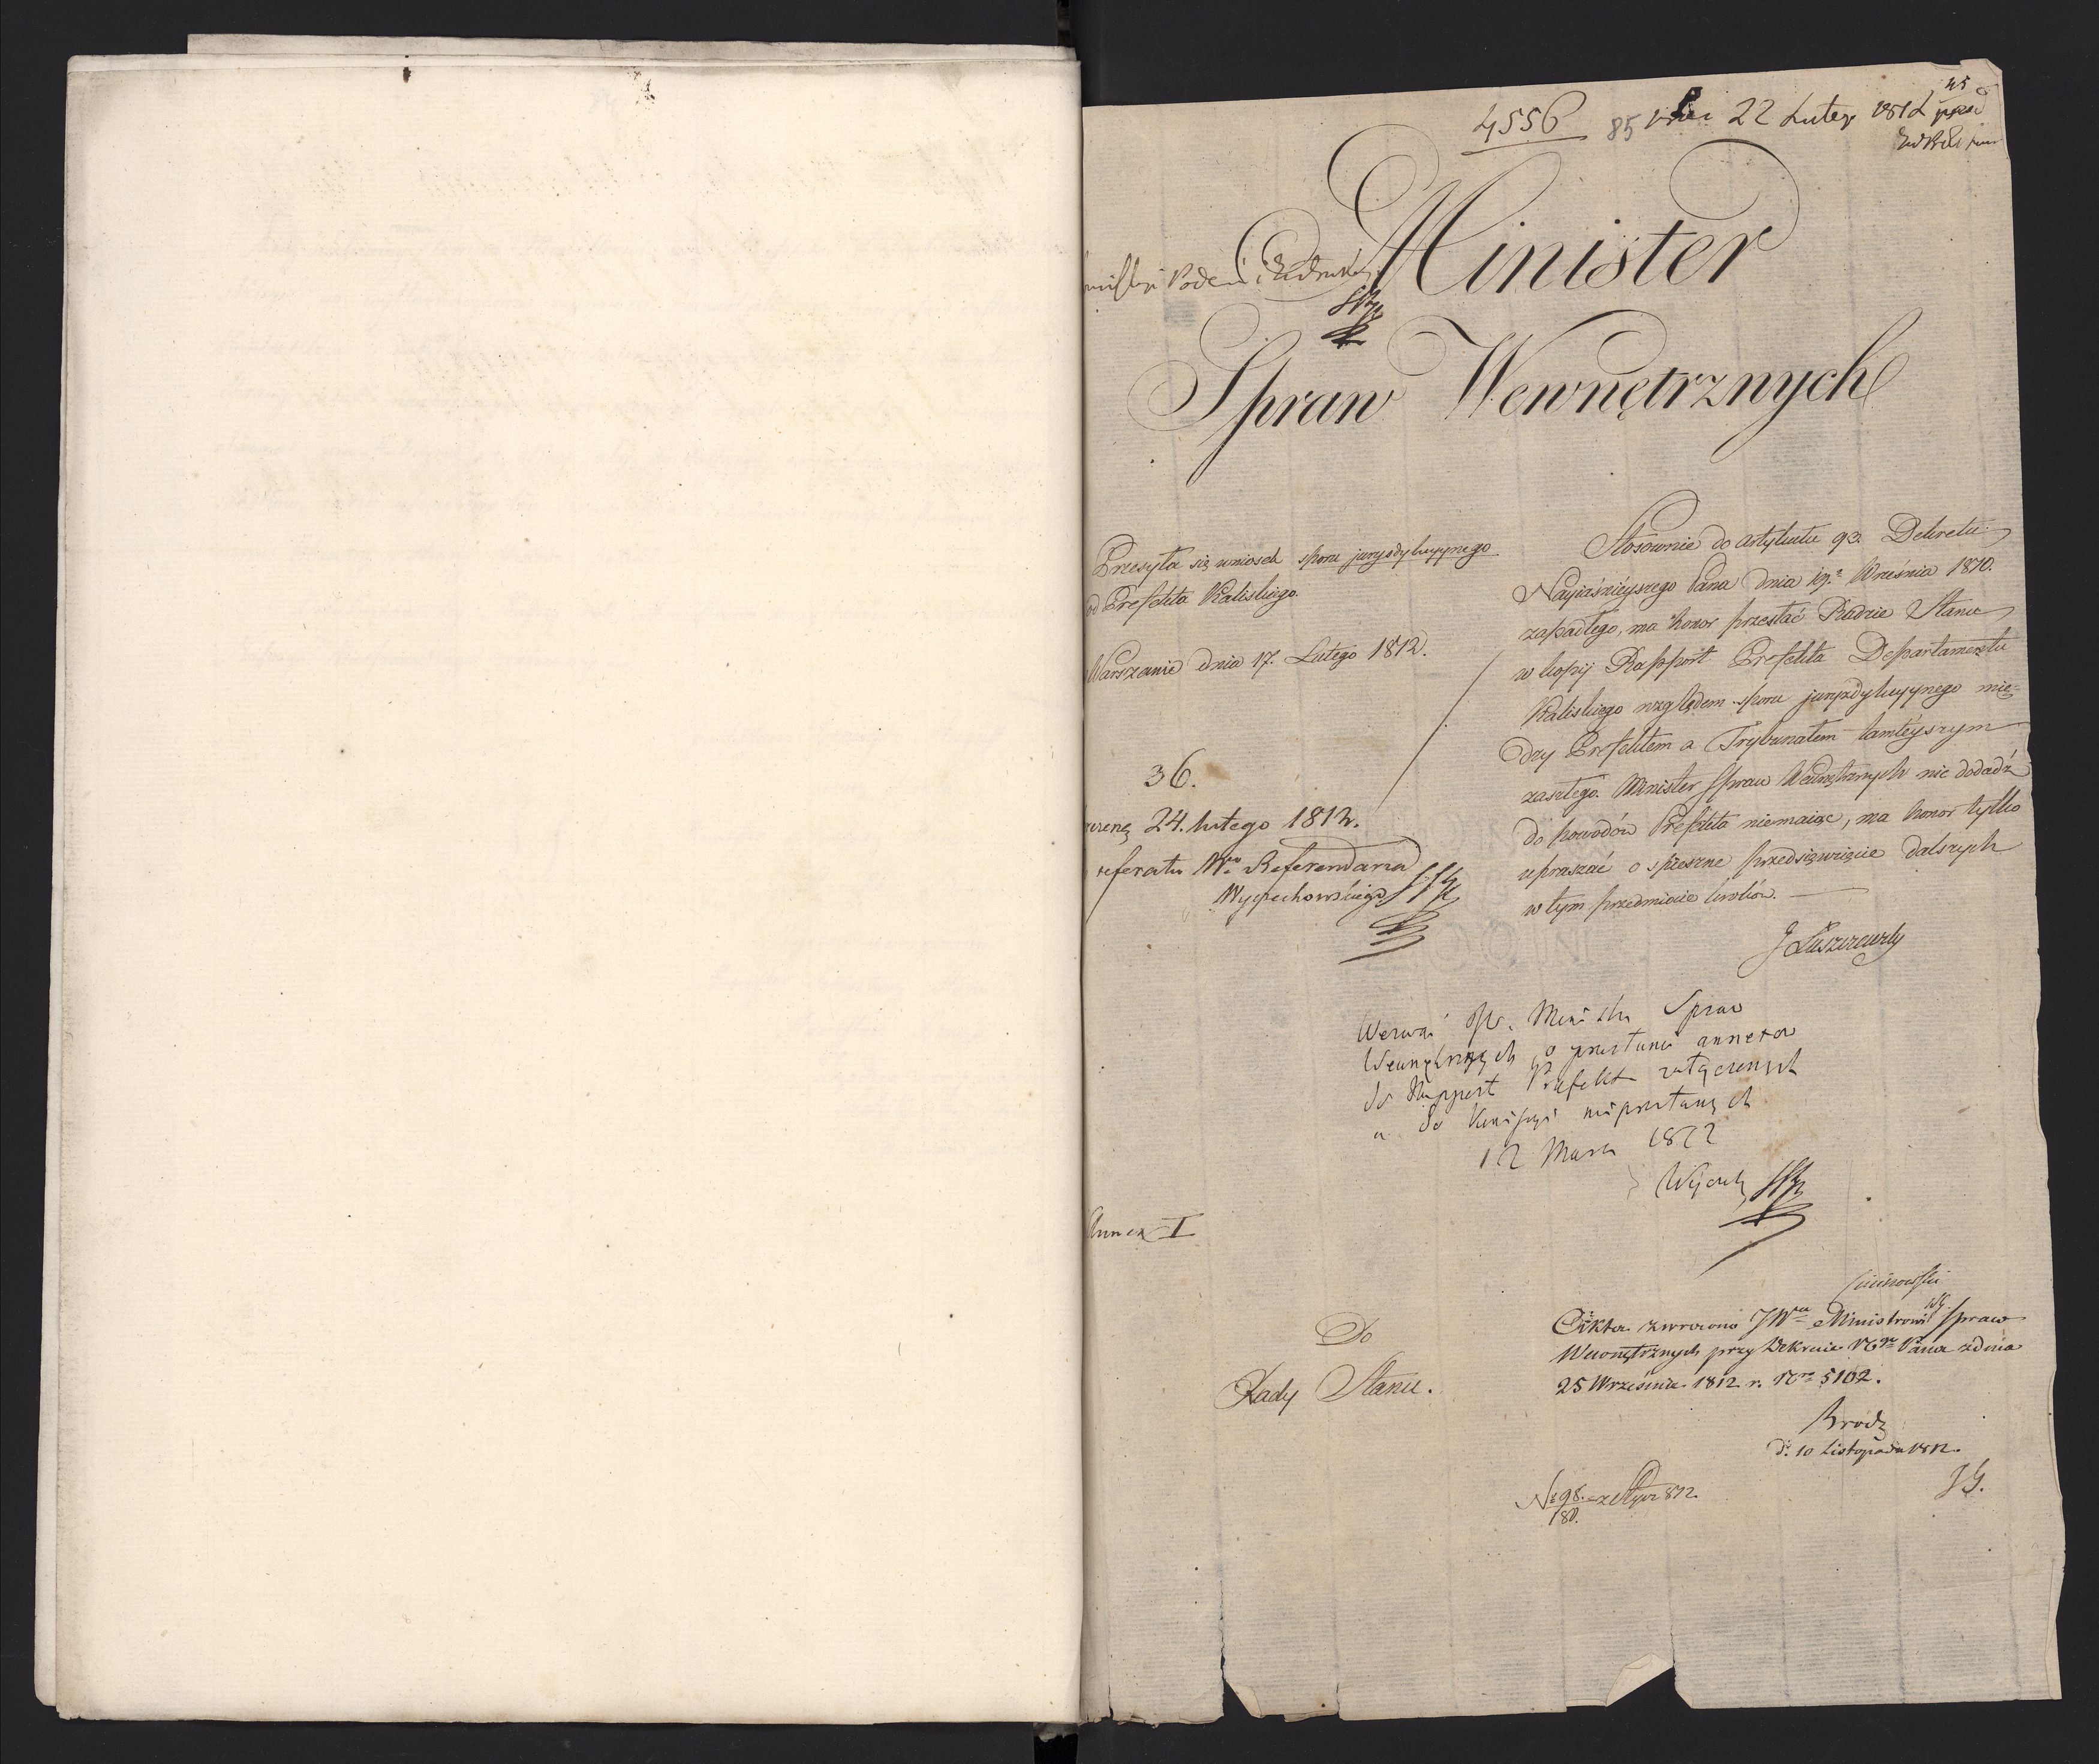 45
4556 85 22 Lutego 1812
Minister
Spraw Wewnętrznych
Przesyła się wniosek sporu jurysdykcyynego
od Prefekta Kaliskiego.
Warszawie dnia 17. Lutego 1812.
36.
24. lutego 1812.
referatu Wo Referendarza
Wyczechowskiego
Stosownie do artykułu 93. Dekretu
Nayiaśnieyszego Pana dnia 19. Września 1810.
zapadłego, ma honor przesłać Radzie Stanu
w kopij Rapport Prefekta Departamentu
Kaliskiego względem sporu jurysdykcyynego mię-
dzy Prefektem a Trybunałem tamteyszym
zaszłego. Minister Spraw Wewnętrznych nic dodadź
do powodów Prefekta niemaiąc, ma honor tylko
upraszać o spieszne przedsięwzięcie dalszych
w tym przedmiocie kroków.
J Łuszczewsky
Wezwać JW. Ministra Spraw
Wewnętrznych o przesłanie annexow
do Rapport Prefekta załączonych
a do Komissyi nieprzesłanych
12 Marca 1812
Wyczech
Annex I
Do
Rady Stanu.
Akta zwrocono JWu Ministrowi Spraw
Wewnętrznych przy Dekrecie NGo Pana z dnia
25 Września 1812 r. Nro 5102.
Brodz
d. 10 Listopada 1812.
JG.
No 98.
180.